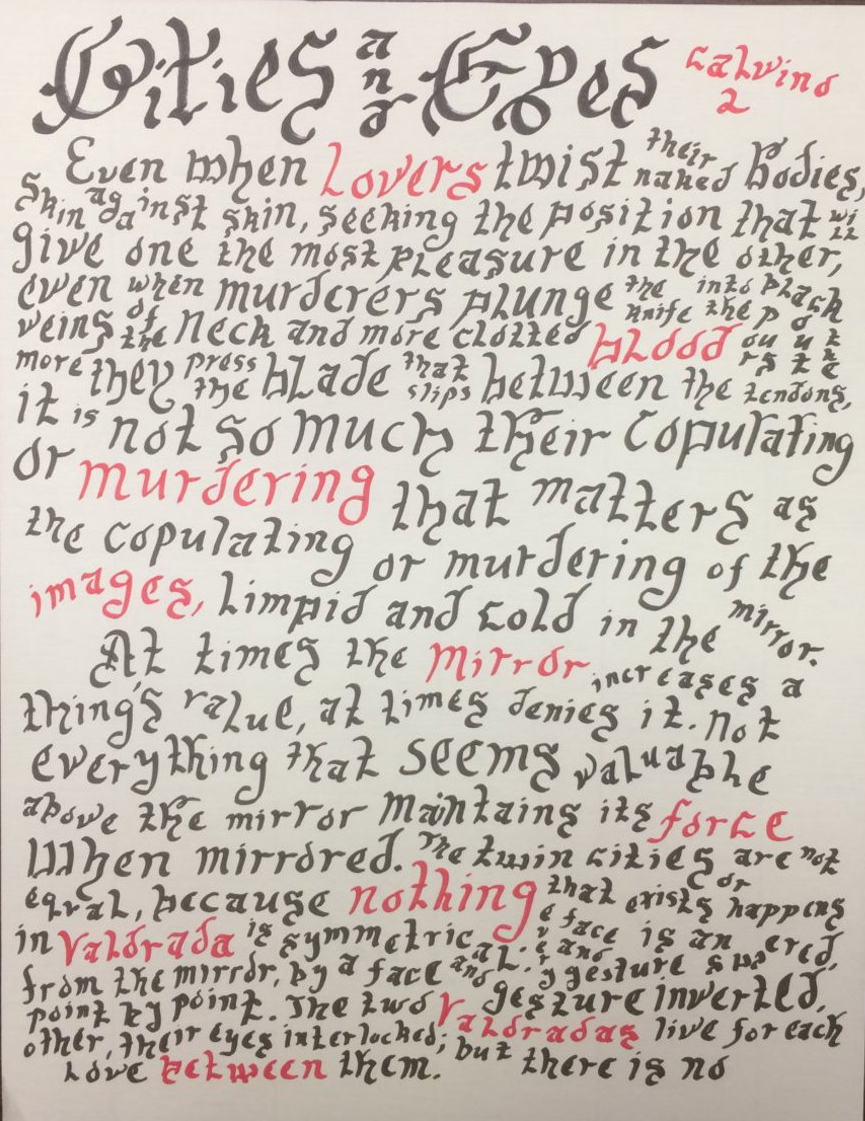 Cities and Eyes Calvino 2
Even when Lovers twist their naked Bodies,
Skin against skin, seeking the position that will
give one the most pleasure in the other,
even when murderers plunge the knife into the black
veins of the Neck and more clotted blood pours out the
more they press the blade that slips between the tendons,
it is not so much their Copulating
or murdering that matters as
the copulating or murdering of the
images, Limpid and cold in the mirror.
At times the Mirror increases a
thing's value, at times denies it. Not
everything that seems valuable
above the mirror Maintains its force
When mirrored. The twin cities are not
equal, because nothing that exists or happens
in Valdrada is symmetrical: every face and gesture is answered,
from the mirror, by a face and gesture inverted,
point by point. The two Valdradas live for each
other, their eyes interlocked; but there is no
Love between them.